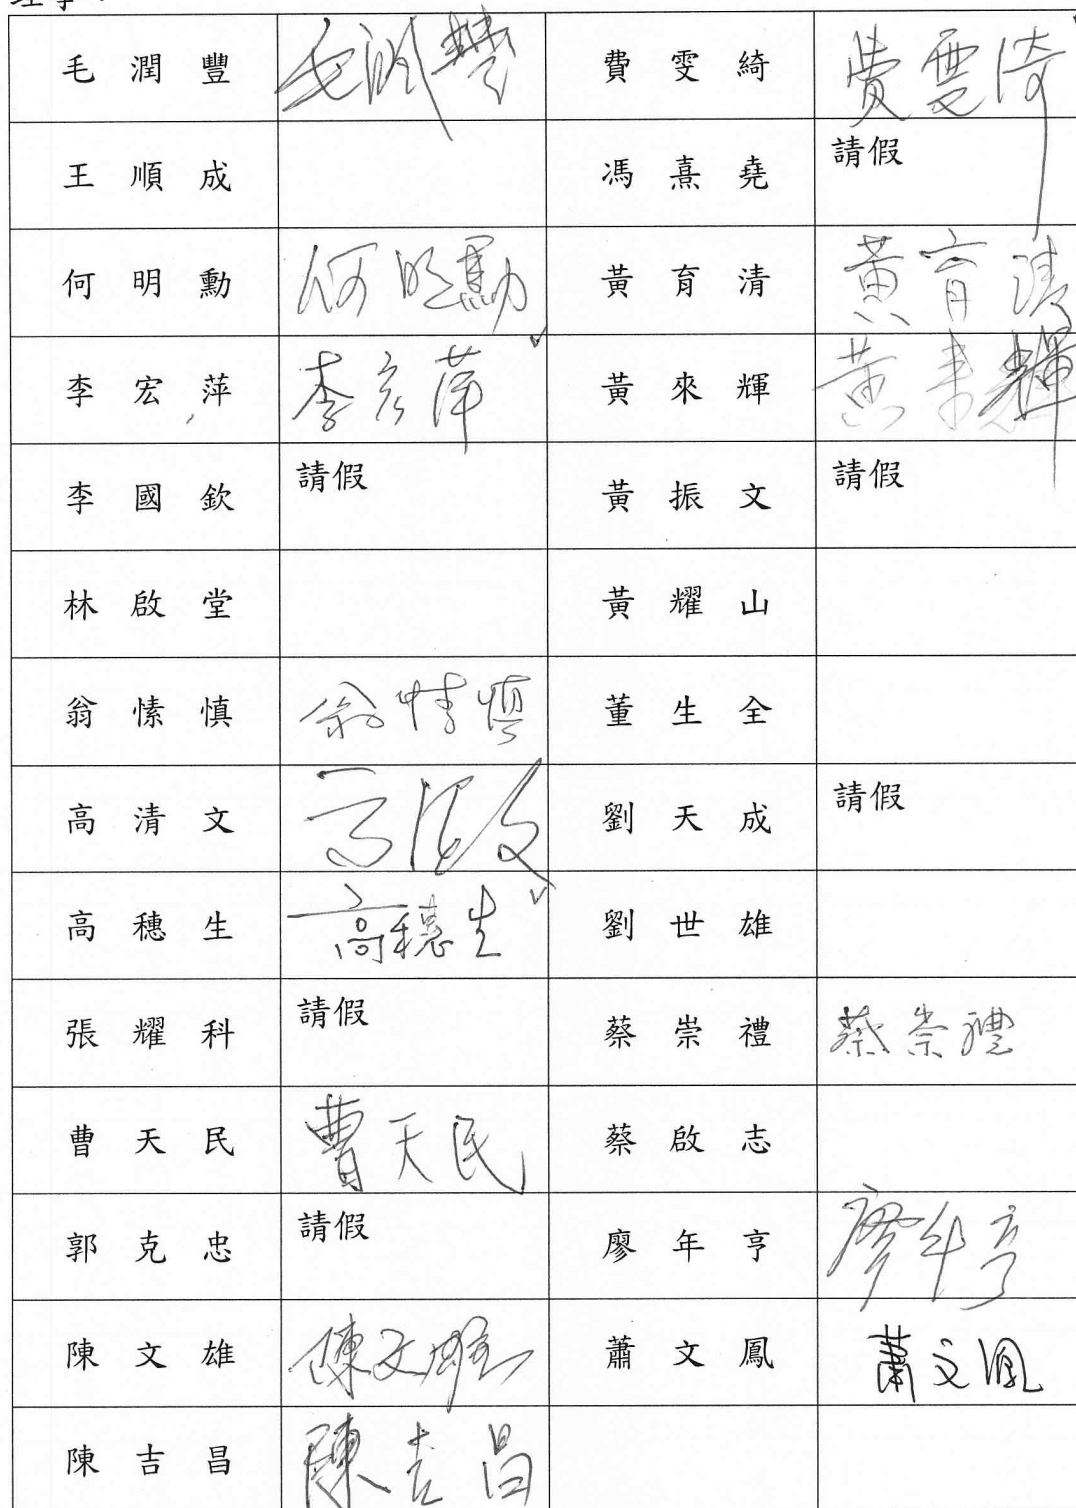 毛潤豐 毛潤豐 費雯綺 費雯綺
王順成 馮熹堯 請假
何明勳 何明勳 黃育清 黃育清
李宏萍 李宏萍 黃來輝 黃來輝
李國欽 請假 黃振文 請假
林啟堂 黃耀山
翁愫慎 翁愫慎 董生全
高清文 高清文 劉天成 請假
高穗生 高穗生 劉世雄
張耀科 請假 蔡崇禮 蔡崇禮
曹天民 曹天民 蔡啟志
郭克忠 請假 廖年亨 廖年亨
陳文雄 陳文雄 蕭文鳳 蕭文鳳
陳吉昌 陳吉昌